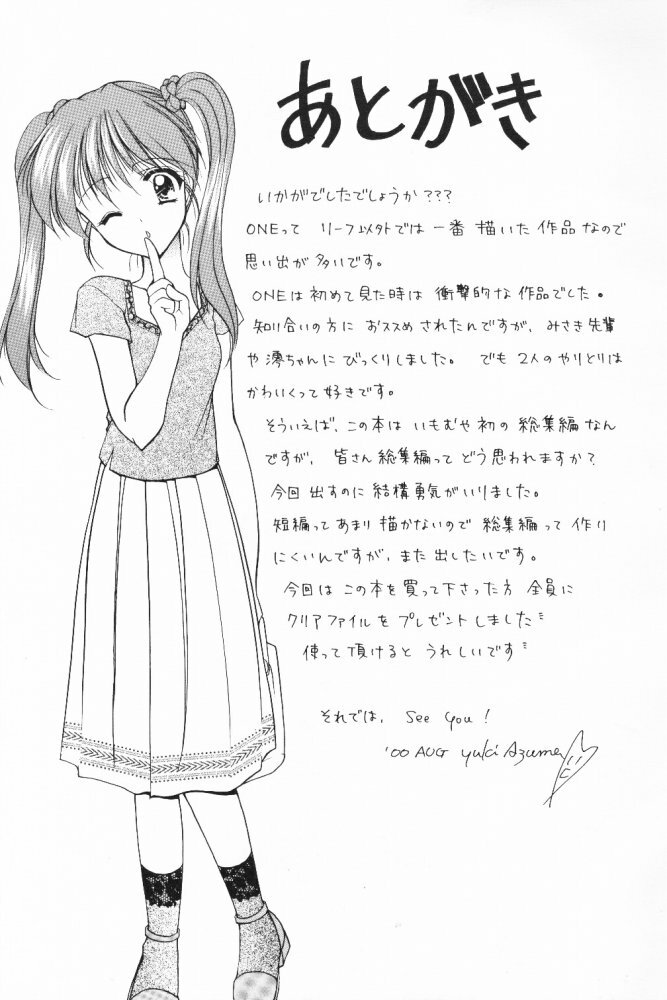 あとがき
いかがでしたでしょうか???
ONEって リーフ以外では 一番 描いた 作品 なので
思い出が 多いです。
ONEは 初めて 見た 時は 衝撃的な 作品でした。
知り合いの方に おススメ されたんですが、みさき先輩
や 澪ちゃんに びっくりしました。 でも 2人の やりとりは
かわいくって 好きです。
そういえば、この本は いもむや 初の 総集編 なん
ですが、 皆さん 総集編って どう思われますか?
今回 出すのに 結構 勇気が いりました。
短編って あまり 描かないので 総集編って 作り
にくいんですが、また 出したいです。
今回は この本を 買って 下さった方 全員に
クリアファイルを プレゼントしました〃
使って 頂けると うれしいです〃
それでは、 See you!
'00 AUG yuki Azuma